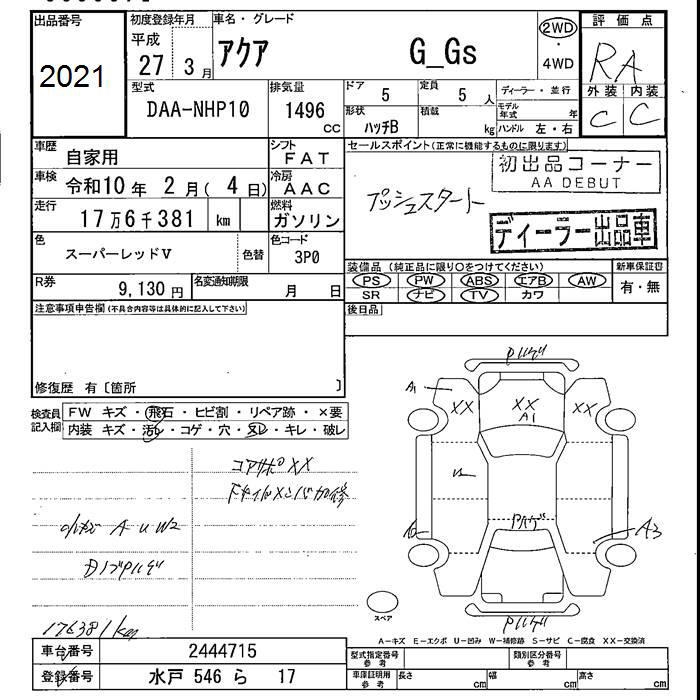 出品番号
2021
初度登録年月
平成
27 3 月
車名・グレード
アクア G_Gs
2WD
・
4WD
評価点
RA
外装 内装
C C
型式
DAA-NHP10
排気量
1496
CC
ドア
5
定員
5 人
形状
ハッチB
積載
kg
ディーラー・並行
モデル年式 年
ハンドル 左・右
車歴
自家用
シフト
FAT
車検
令和10年 2月( 4日)
冷房
AAC
走行
17万6千381 km
燃料
ガソリン
色
スーパーレッドV
色替
色コード
3P0
R券
9,130 円
名変通知期限
月 日
セールスポイント(正常に機能するものに限ります)
初出品コーナー
AA DEBUT
プッシュスタート
ディーラー出品車
装備品(純正品に限り○をつけてください)
PS PW ABS エアB AW
SR ナビ TV カワ
新車保証書
有・無
注意事項申告欄(不具合内容等は具体的に記入して下さい)
後日品
修復歴 有〔箇所 〕
検査員記入欄
FW キズ・飛石・ヒビ割・リペア跡・×要
内装 キズ・汚れ・コゲ・穴・スレ・キレ・破レ
コアサポXX
A U W2
176381km
A1
XX
XX
A1
XX
A3
スペア
A-キズ E-エクボ U-凹み W-補修跡 S-サビ C-腐食 XX-交換済
車台番号
2444715
登録番号
水戸 546 ら 17
型式指定番号
参考
類別区分番号
参考
車庫証明用
参考
長さ cm
幅 cm
高さ cm